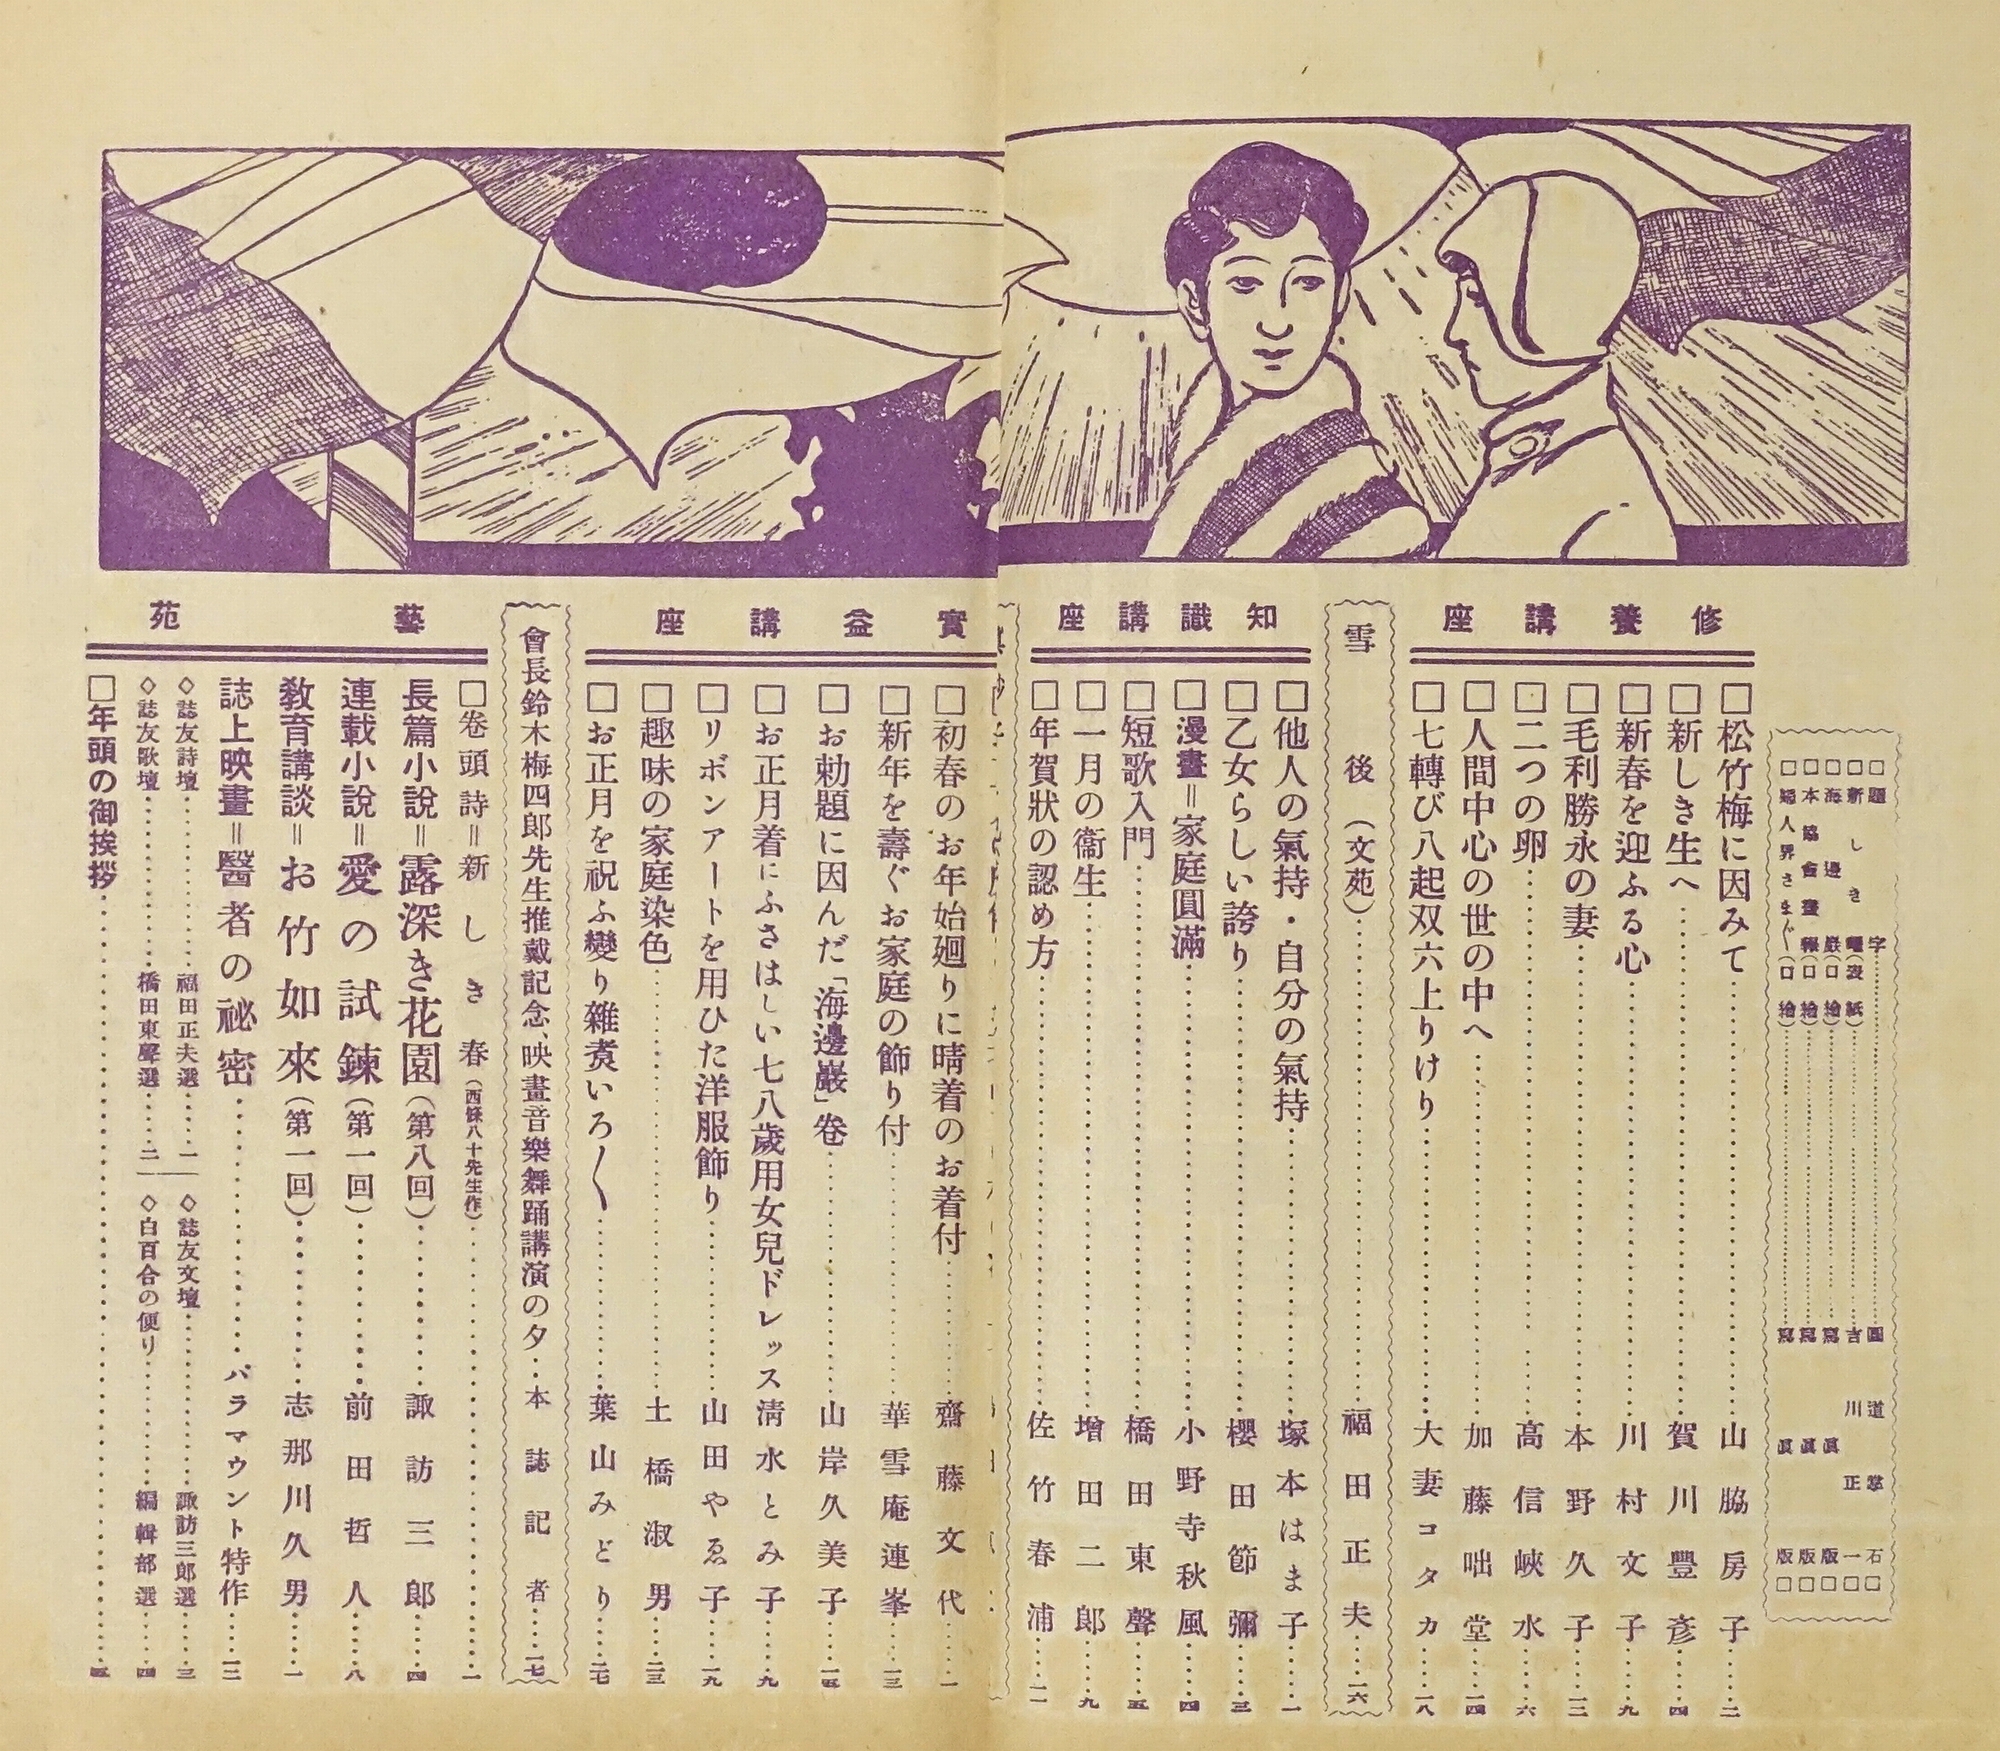 □題字…………圓道掌石
□新しき曙(表紙)…………吉川正一□
□海邊巖(口繪)…………寫眞版□
□本協會畫報(口繪)…………寫眞版□
□婦人界さま〴〵(口繪)…………寫眞版□
修養講座
□松竹梅に因みて…………山脇房子……二
□新しき生へ…………賀川豐彦……四
□新春を迎ふる心…………川村文子……九
□毛利勝永の妻…………本野久子……一二
□二つの卵…………高信峽水……六
□人間中心の世の中へ…………加藤咄堂……一四
□七轉び八起双六上りけり…………大妻コタカ……一八
雪後(文苑)…………福田正夫……一六
知識講座
□他人の氣持・自分の氣持…………塚本はま子……一
□乙女らしい誇り…………櫻田節彌……三
□漫畫＝家庭圓滿…………小野寺秋風……四
□短歌入門…………橋田東聲……五
□一月の衞生…………增田二郎……九
□年賀狀の認め方…………佐竹春浦……一一
實益講座
□初春のお年始廻りに晴着のお着付…………齋藤文代……一
□新年を壽ぐお家庭の飾り付…………華雪庵連峯……一三
□お勅題に因んだ「海邊巖」卷…………山岸久美子……一五
□お正月着にふさはしい七八歲用女兒ドレッス清水とみ子……九
□リボンアートを用ひた洋服飾り…………山田やゑ子……一九
□趣味の家庭染色…………土橋淑男……二三
□お正月を祝ふ變り雜煮いろ〱…………葉山みどり……二七
會長鈴木梅四郎先生推戴記念、映畫音樂舞踊講演の夕…本誌記者……一七
藝苑
□卷頭詩＝新しき春(西條八十先生作)…………一
長篇小說＝露深き花園(第八回)…………諏訪三郎……四
連載小說＝愛の試鍊(第一回)…………前田哲人……八
敎育講談＝お竹如來(第一回)…………志那川久男……一
誌上映畫＝醫者の祕密…………パラマウント特作……一二
◇誌友詩壇…………福田正夫選……一
◇誌友文壇…………諏訪三郎選……三
◇誌友歌壇…………橋田東聲選……二
◇白百合の便り…………編輯部選……四
□年頭の御挨拶…………五